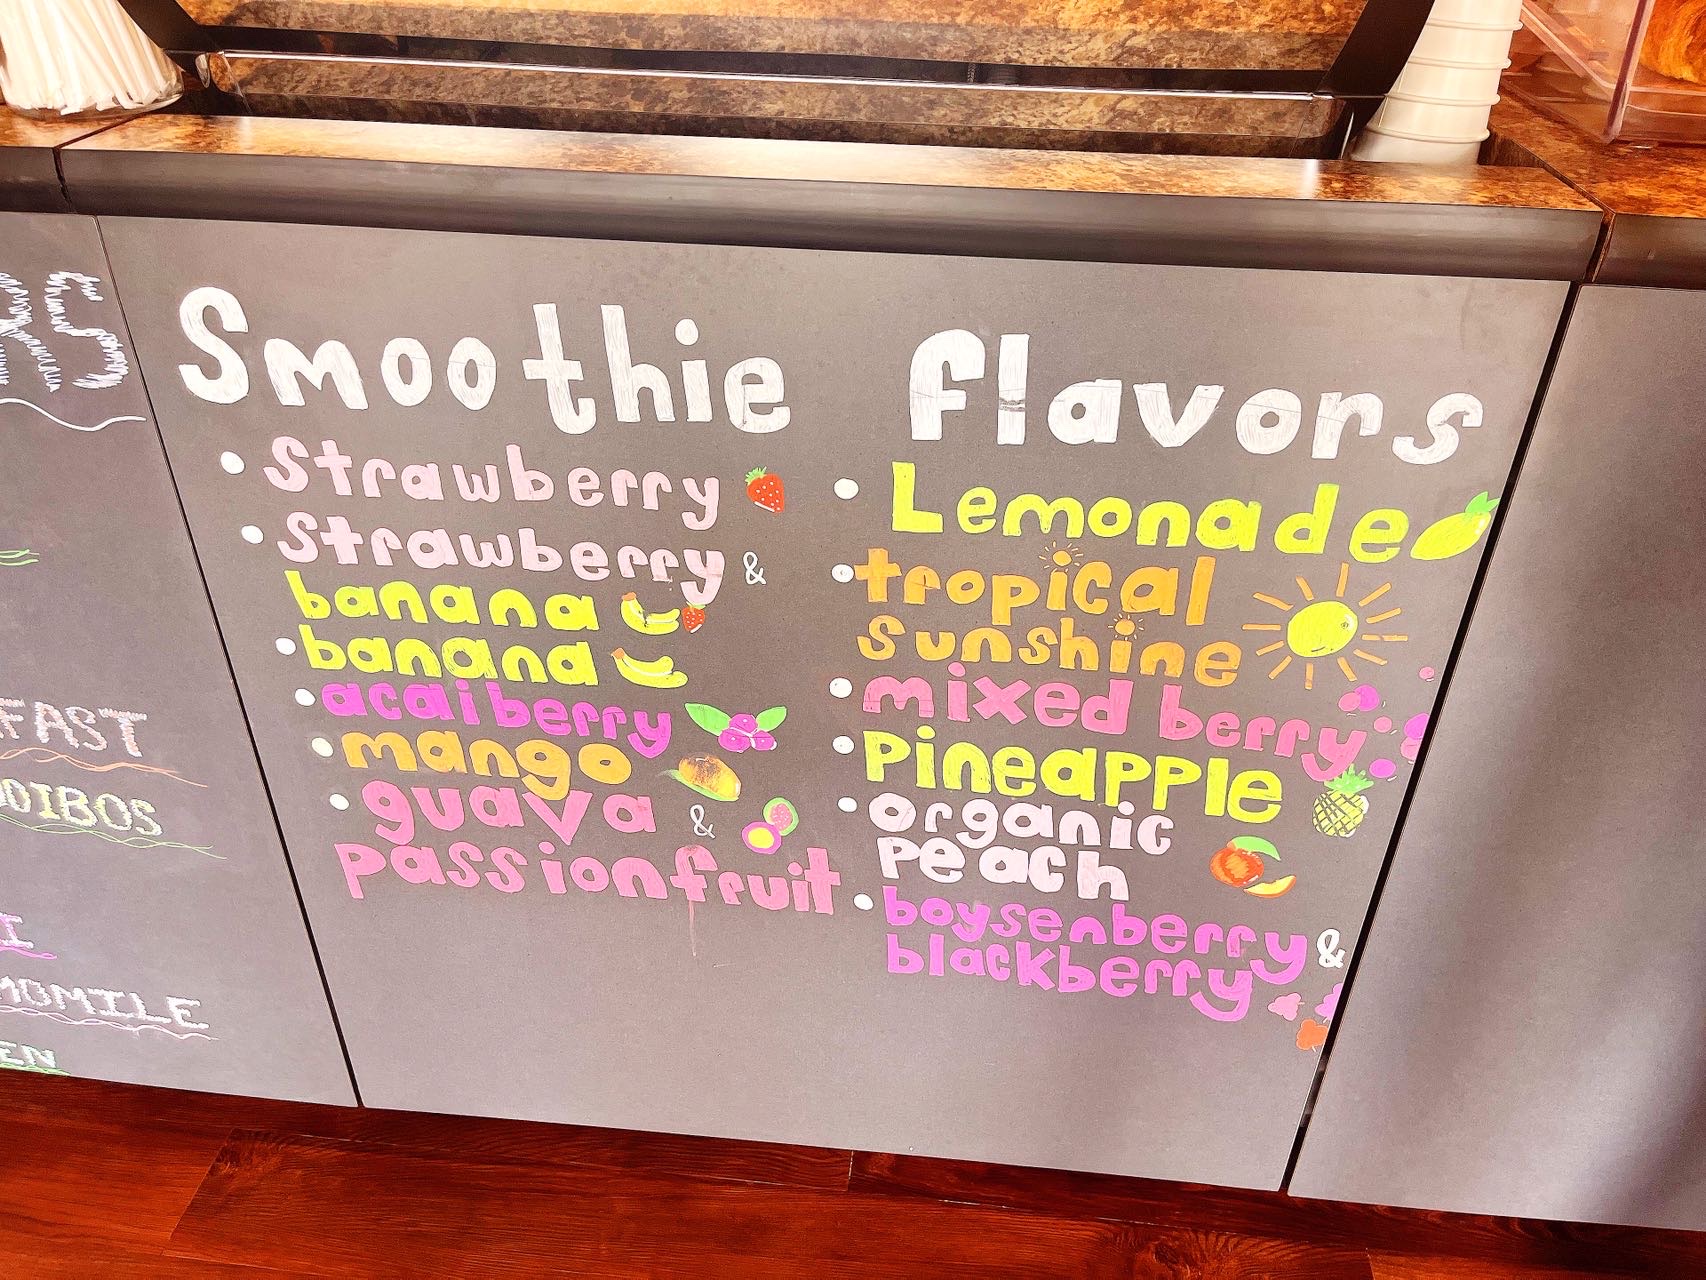 Smoothie flavors
• Strawberry
• Strawberry &
banana
• banana
• acai berry
• mango
• guava &
passionfruit
• Lemonade
• tropical
sunshine
• mixed berry
• pineapple
• organic
peach
• boysenberry &
blackberry